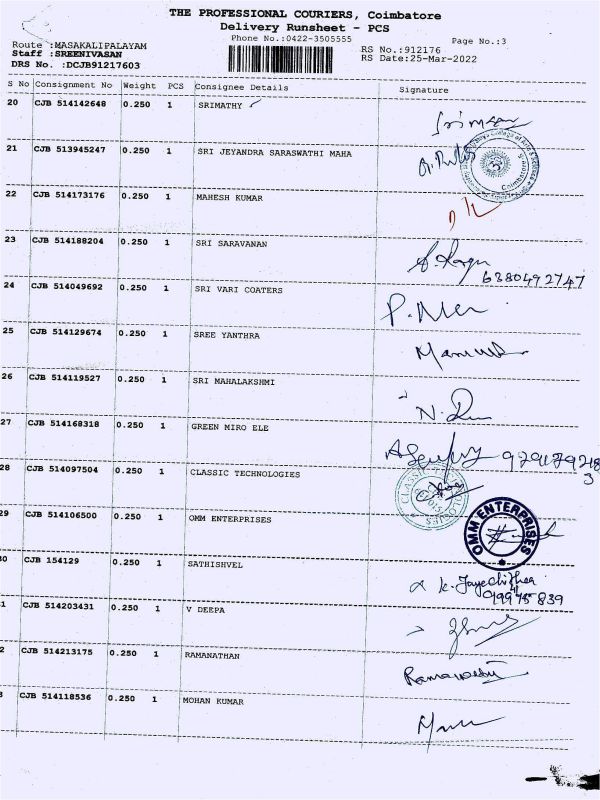 THE PROFESSIONAL COURIERS, Coimbatore
Delivery Runsheet - PCS
Phone No.:0422-3505555
Page No.:3
Route :MASAKALIPALAYAM
Staff :SREENIVASAN
DRS No. :DCJB91217603
RS No.:912176
RS Date:25-Mar-2022
S No Consignment No Weight PCS Consignee Details Signature
20 CJB 514142648 0.250 1 SRIMATHY
21 CJB 513945247 0.250 1 SRI JEYANDRA SARASWATHI MAHA
22 CJB 514173176 0.250 1 MAHESH KUMAR
23 CJB 514188204 0.250 1 SRI SARAVANAN
6380492747
24 CJB 514049692 0.250 1 SRI VARI COATERS
25 CJB 514129674 0.250 1 SREE YANTHRA
26 CJB 514119527 0.250 1 SRI MAHALAKSHMI
27 CJB 514168318 0.250 1 GREEN MIRO ELE
28 CJB 514097504 0.250 1 CLASSIC TECHNOLOGIES
29 CJB 514106500 0.250 1 OMM ENTERPRISES
OMM ENTERPRISES
30 CJB 154129 0.250 1 SATHISHVEL
31 CJB 514203431 0.250 1 V DEEPA
2 CJB 514213175 0.250 1 RAMANATHAN
3 CJB 514118536 0.250 1 MOHAN KUMAR